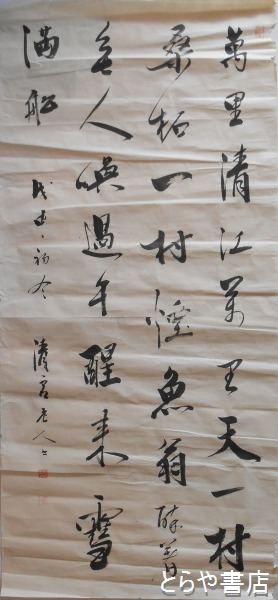 萬里清江萬里天一村
桑柘一村煙魚翁醉著
無人喚過午醒來雪
滿船
初冬
老人
とらや書店